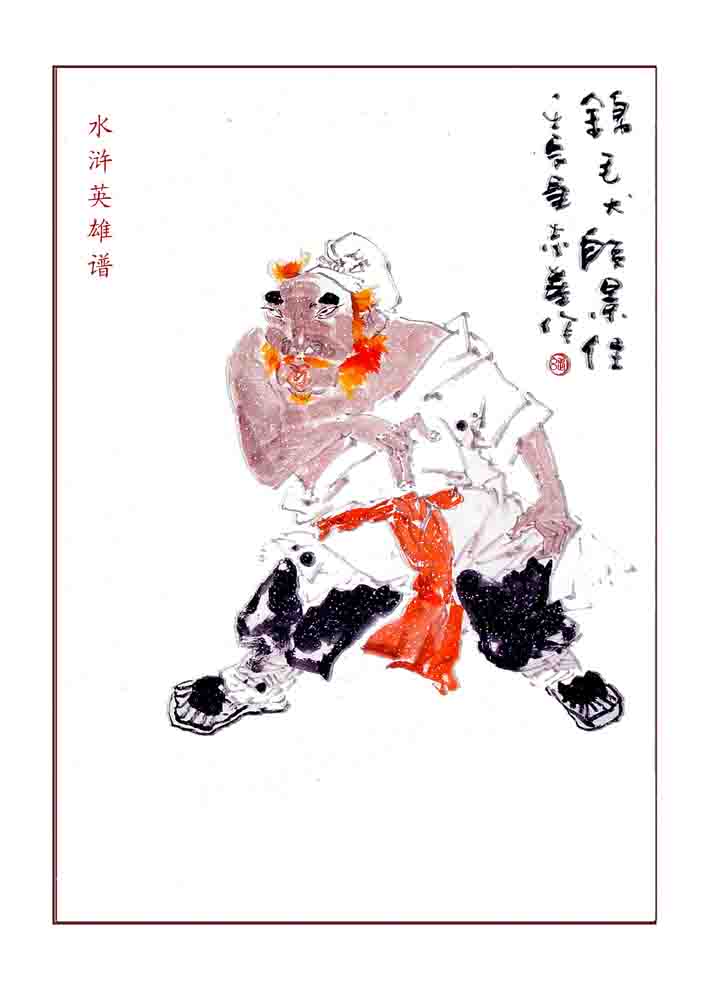 锦毛犬段景住
壬辰年志華作
水浒英雄谱